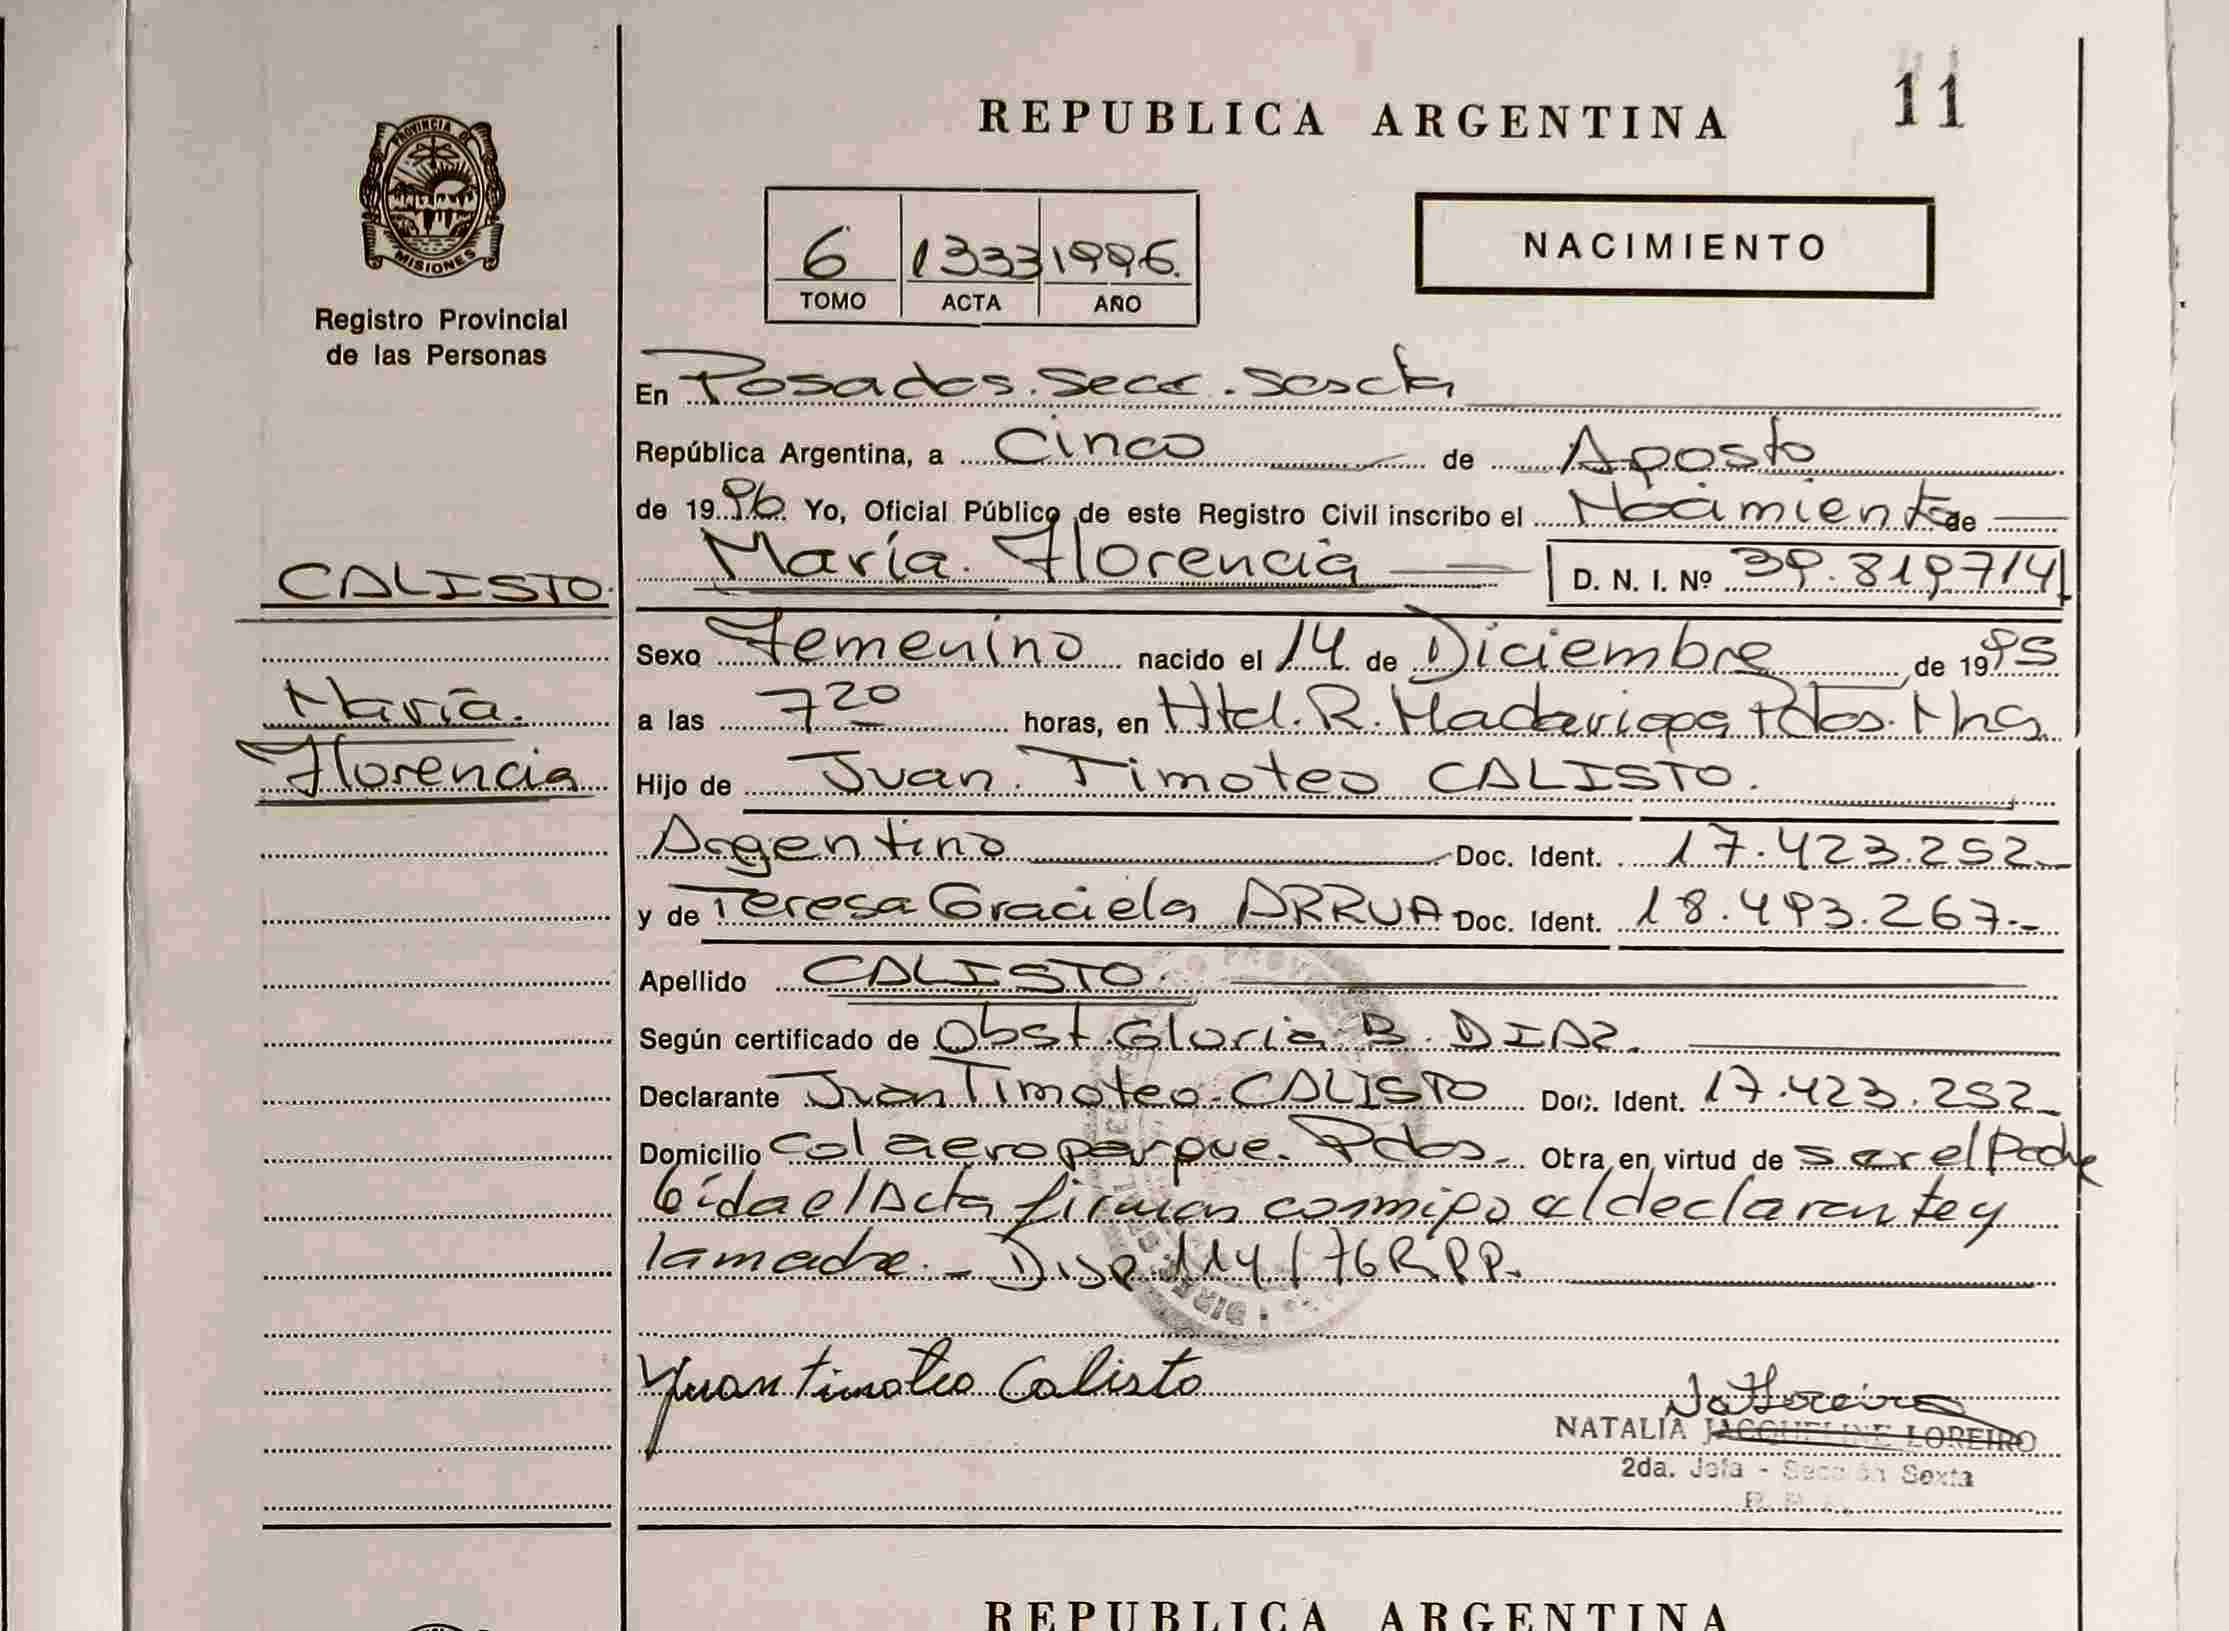 REPUBLICA ARGENTINA
11
PROVINCIA DE
MISIONES
Registro Provincial
de las Personas
6 1333 1996.
TOMO ACTA AÑO
NACIMIENTO
En Posadas. Secc. Sexta
República Argentina, a Cinco de Agosto
de 1996. Yo, Oficial Público de este Registro Civil inscribo el Nacimiento de
María. Florencia D. N. I. Nº 39.819714
CALISTO.
Sexo Femenino nacido el 14 de Diciembre de 1995
María.
a las 7 20 horas, en Htal. R. Madariaga Pdas. Mnes
Florencia
Hijo de Juan. Timoteo CALISTO.
Argentino Doc. Ident. 17.423.252
y de Teresa Graciela ARRUA Doc. Ident. 18.493.267.-
Apellido CALISTO.
Según certificado de Obst. Gloria B. DIAZ.
Declarante Juan Timoteo CALISTO Doc. Ident. 17.423.252
Domicilio Col aeroparque. Pdas. Otra, en virtud de ser el Padre
Leida el Acta firman conmigo el declarante y
la madre. - Disp. 114/76 R.P.P.
Juan timoteo Calisto
NATALIA JACQUELINE LOREIRO
2da. Jefa - Sección Sexta
REPUBLICA ARGENTINA